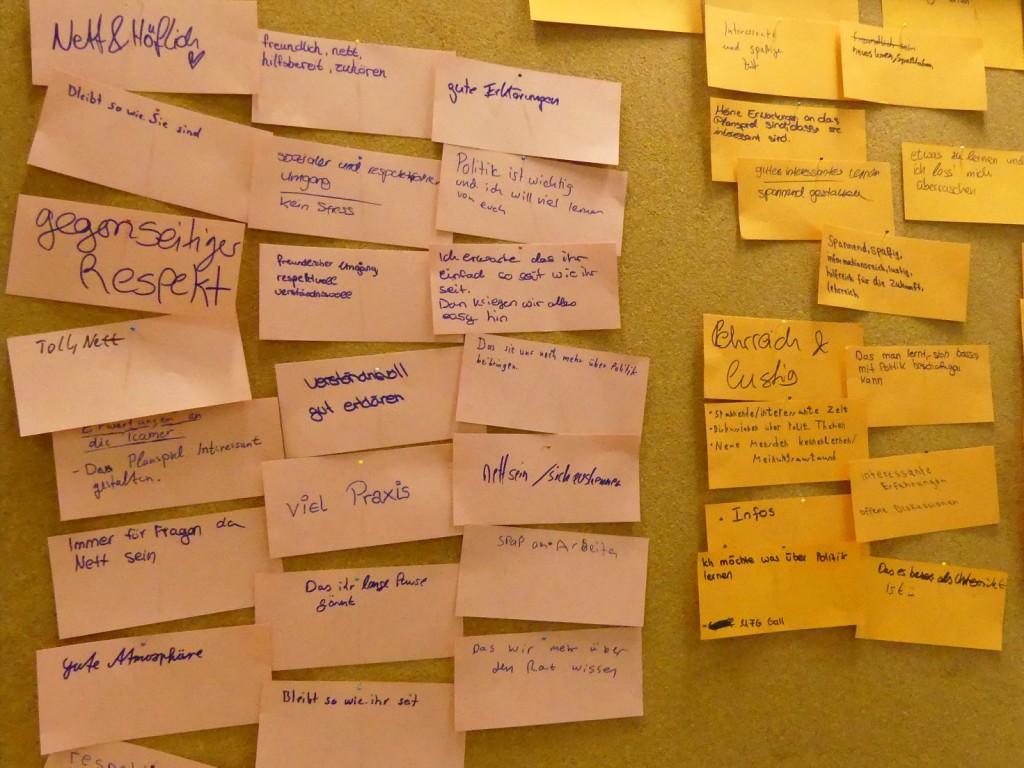 Nett & Höflich
freundlich, nett,
hilfsbereit, zuhören
gute Erklärungen
Bleibt so wie Sie sind
sozialer und respektvoller
Umgang
kein Stress
Politik ist wichtig
und ich will viel lernen
von euch
gegenseitiger
Respekt
freundlicher Umgang,
respektvoll
verständnisvoll
Ich erwarte das ihr
einfach so seit wie ihr
seit.
Dan kriegen wir alles
easy hin
Toll, Nett
verständnisvoll
gut erklären
Das sie uns noch mehr über Politik
beibringen
Erwartungen an
die Teamer
- Das Planspiel Interessant
gestalten.
viel Praxis
nett sein /
Immer für Fragen da
Nett sein
Das ihr lange Pause
gönnt
Spaß am Arbeiten
gute Atmosphäre
Bleibt so wie ihr seit
Das wir mehr über
den Rat wissen
Interessante
und spaßige
Zeit
neues lernen/
Meine Erwartungen an das
Planspiel sind, dass sie
interessant sind.
gutes interessantes Lernen
spannend gestalten
etwas zu lernen und
ich lass mich
überraschen
Spannend, spaßig,
informationsreich, lustig,
hilfreich für die Zukunft,
lehrreich
Lehrreich &
lustig
Das man lernt, sich besser
mit Politik beschäftigen
kann
• Spannende/interessante Zeit
• Diskutieren über Polit. Themen
• Neue Menschen kennenlernen/
Meinungsaustausch
interessante
Erfahrungen
offene Diskussionen
• Infos
Ich möchte was über Politik
lernen
Das es besser als Unterricht
ist